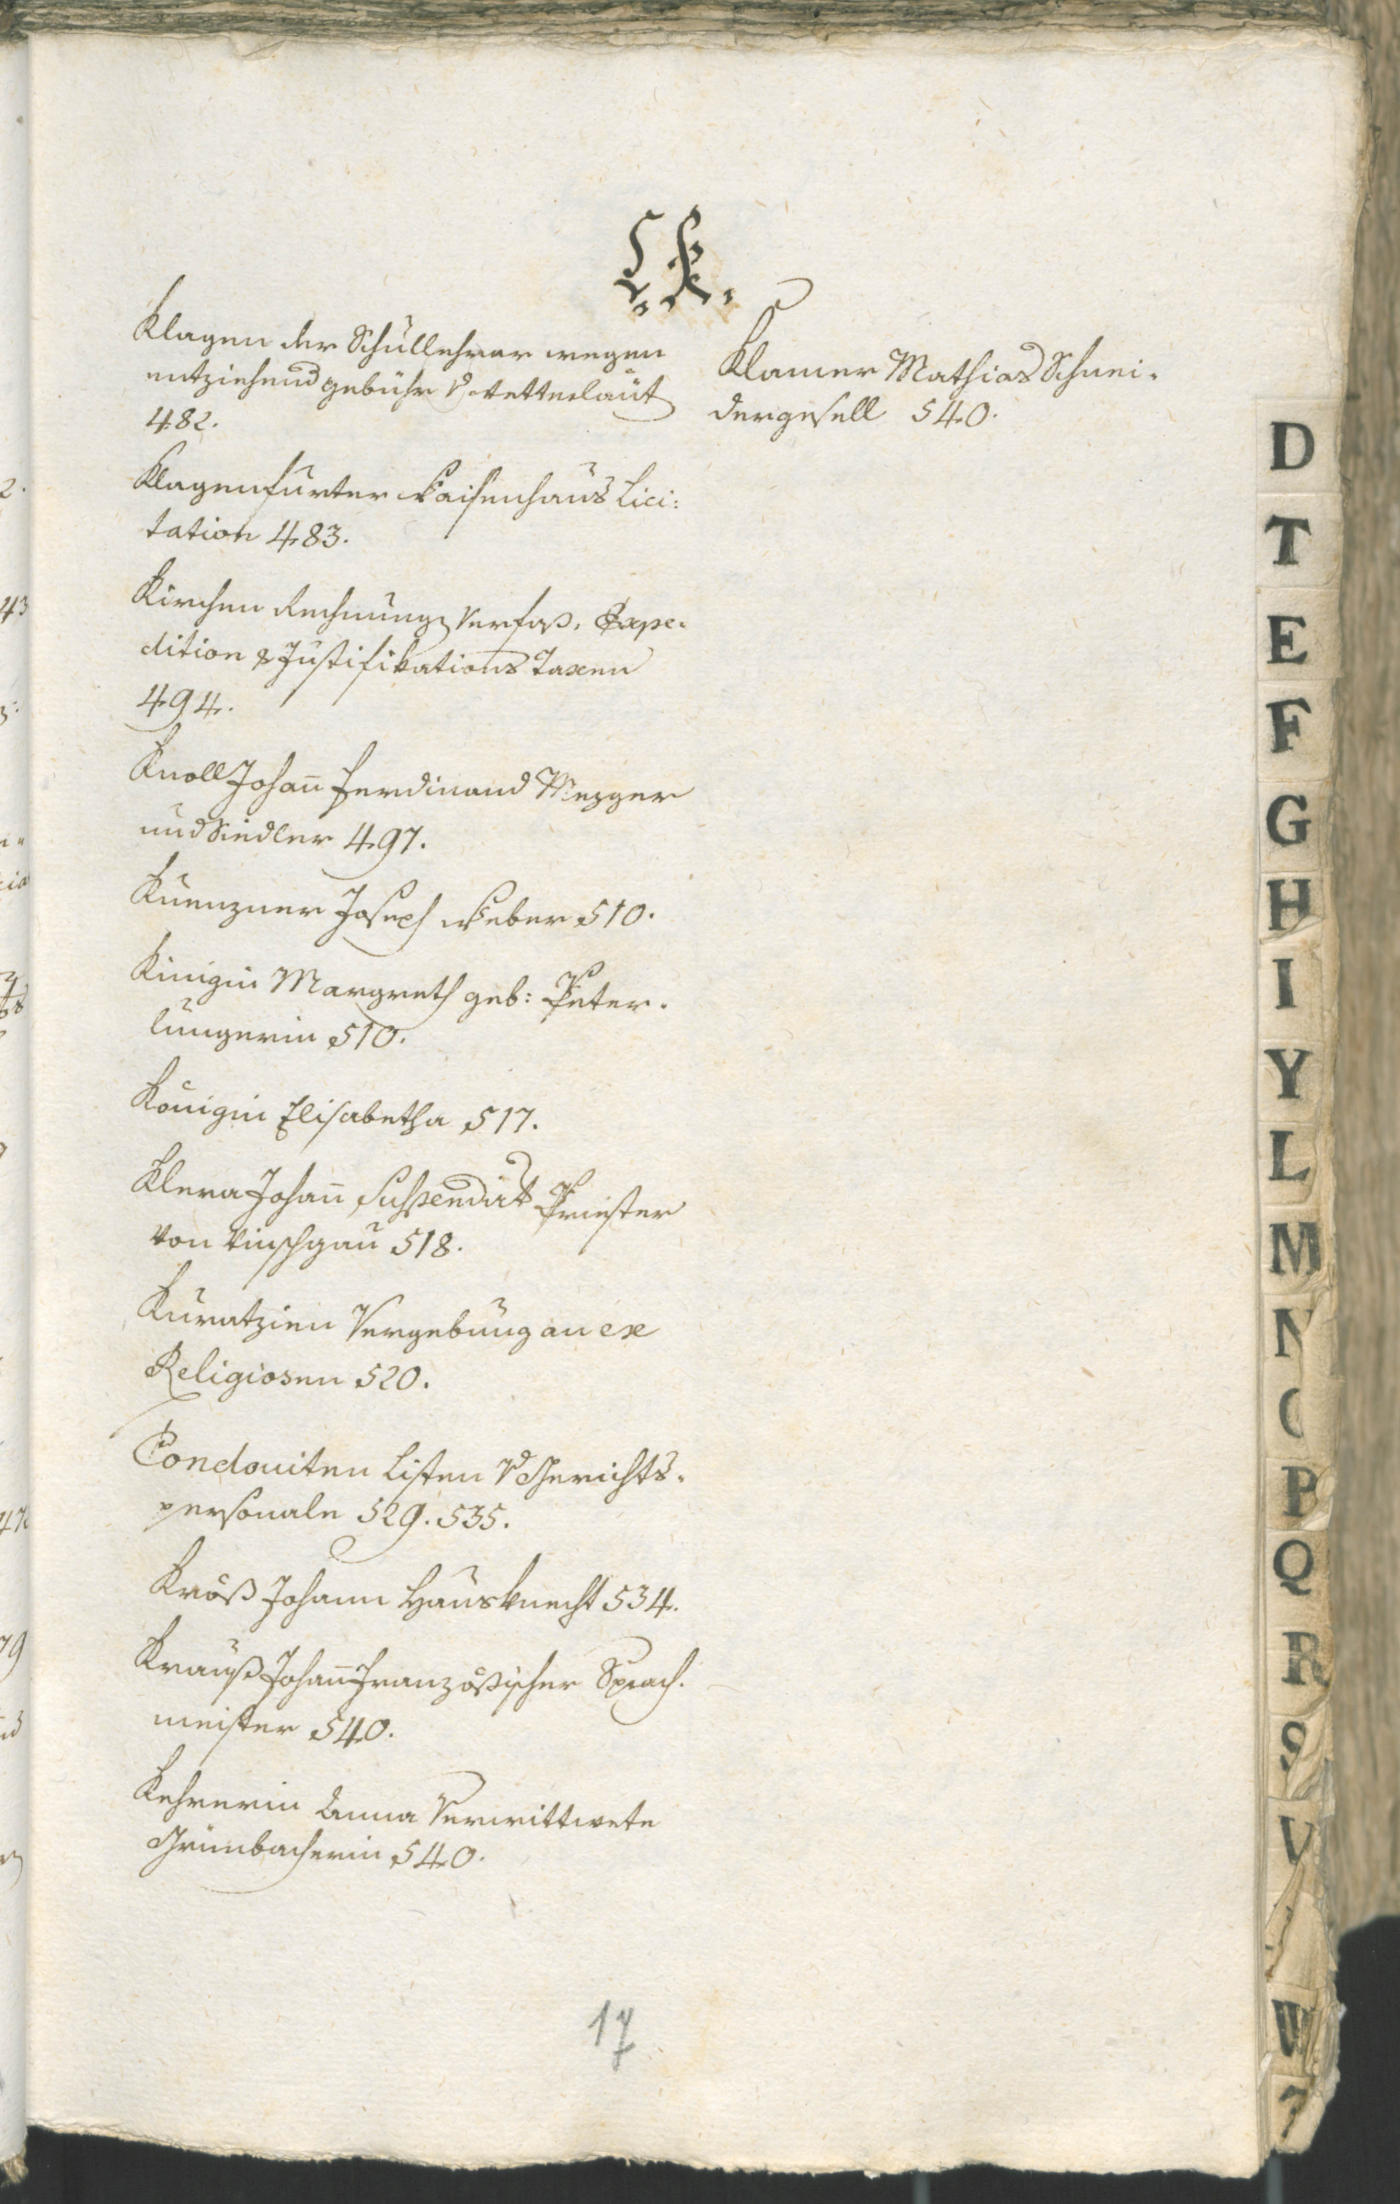 C K.
Klagen der Schullehrer wegen
entziehend gebühr v Wetterläut
482.
Klagenfurter Waisenhaus Lici:
tation 483.
Kirchen Rechnungs Verfaß. Expe-
dition & Justifikations Taxen
494.
Knoll Johan̅ Ferdinand Mezger
und Sindler 497.
Kuenzner Joseph Weber 510.
Kinigin Margreth geb: Peter-
lungerin 510.
Königin Elisabetha 517.
Klera Johan̅ Suspendirt Priester
von Vinschgau 518.
Kuratzien Vergebung an ex
Religiosen 520.
Condouiten Listen v Gerichts-
personale 529. 535.
Kröß Johann Hausknecht 534.
Krauß Johan̅ Französischer Sprach-
meister 540.
Kehrerin Anna Verwittwete
Grünbacherin 540.
Klamer Mathias Schnei-
dergesell 540.
17
D
T
E
F
G
H
I
Y
L
M
N
P
Q
R
S
V
W